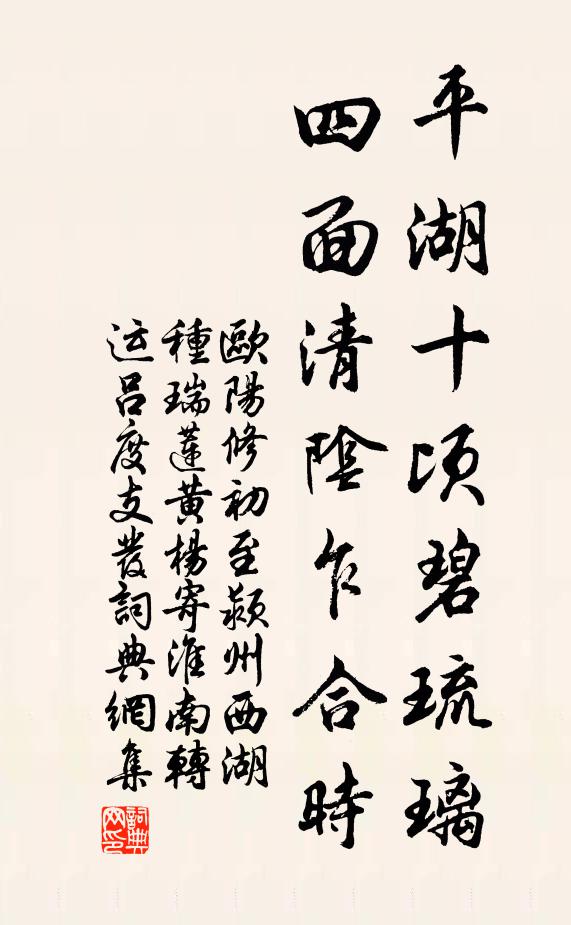 平湖十頃碧琉璃
四面清陰乍合時
歐陽修初至潁州西湖
種瑞蓮黃楊寄淮南轉
运呂度支發詞典網集
詞典網印